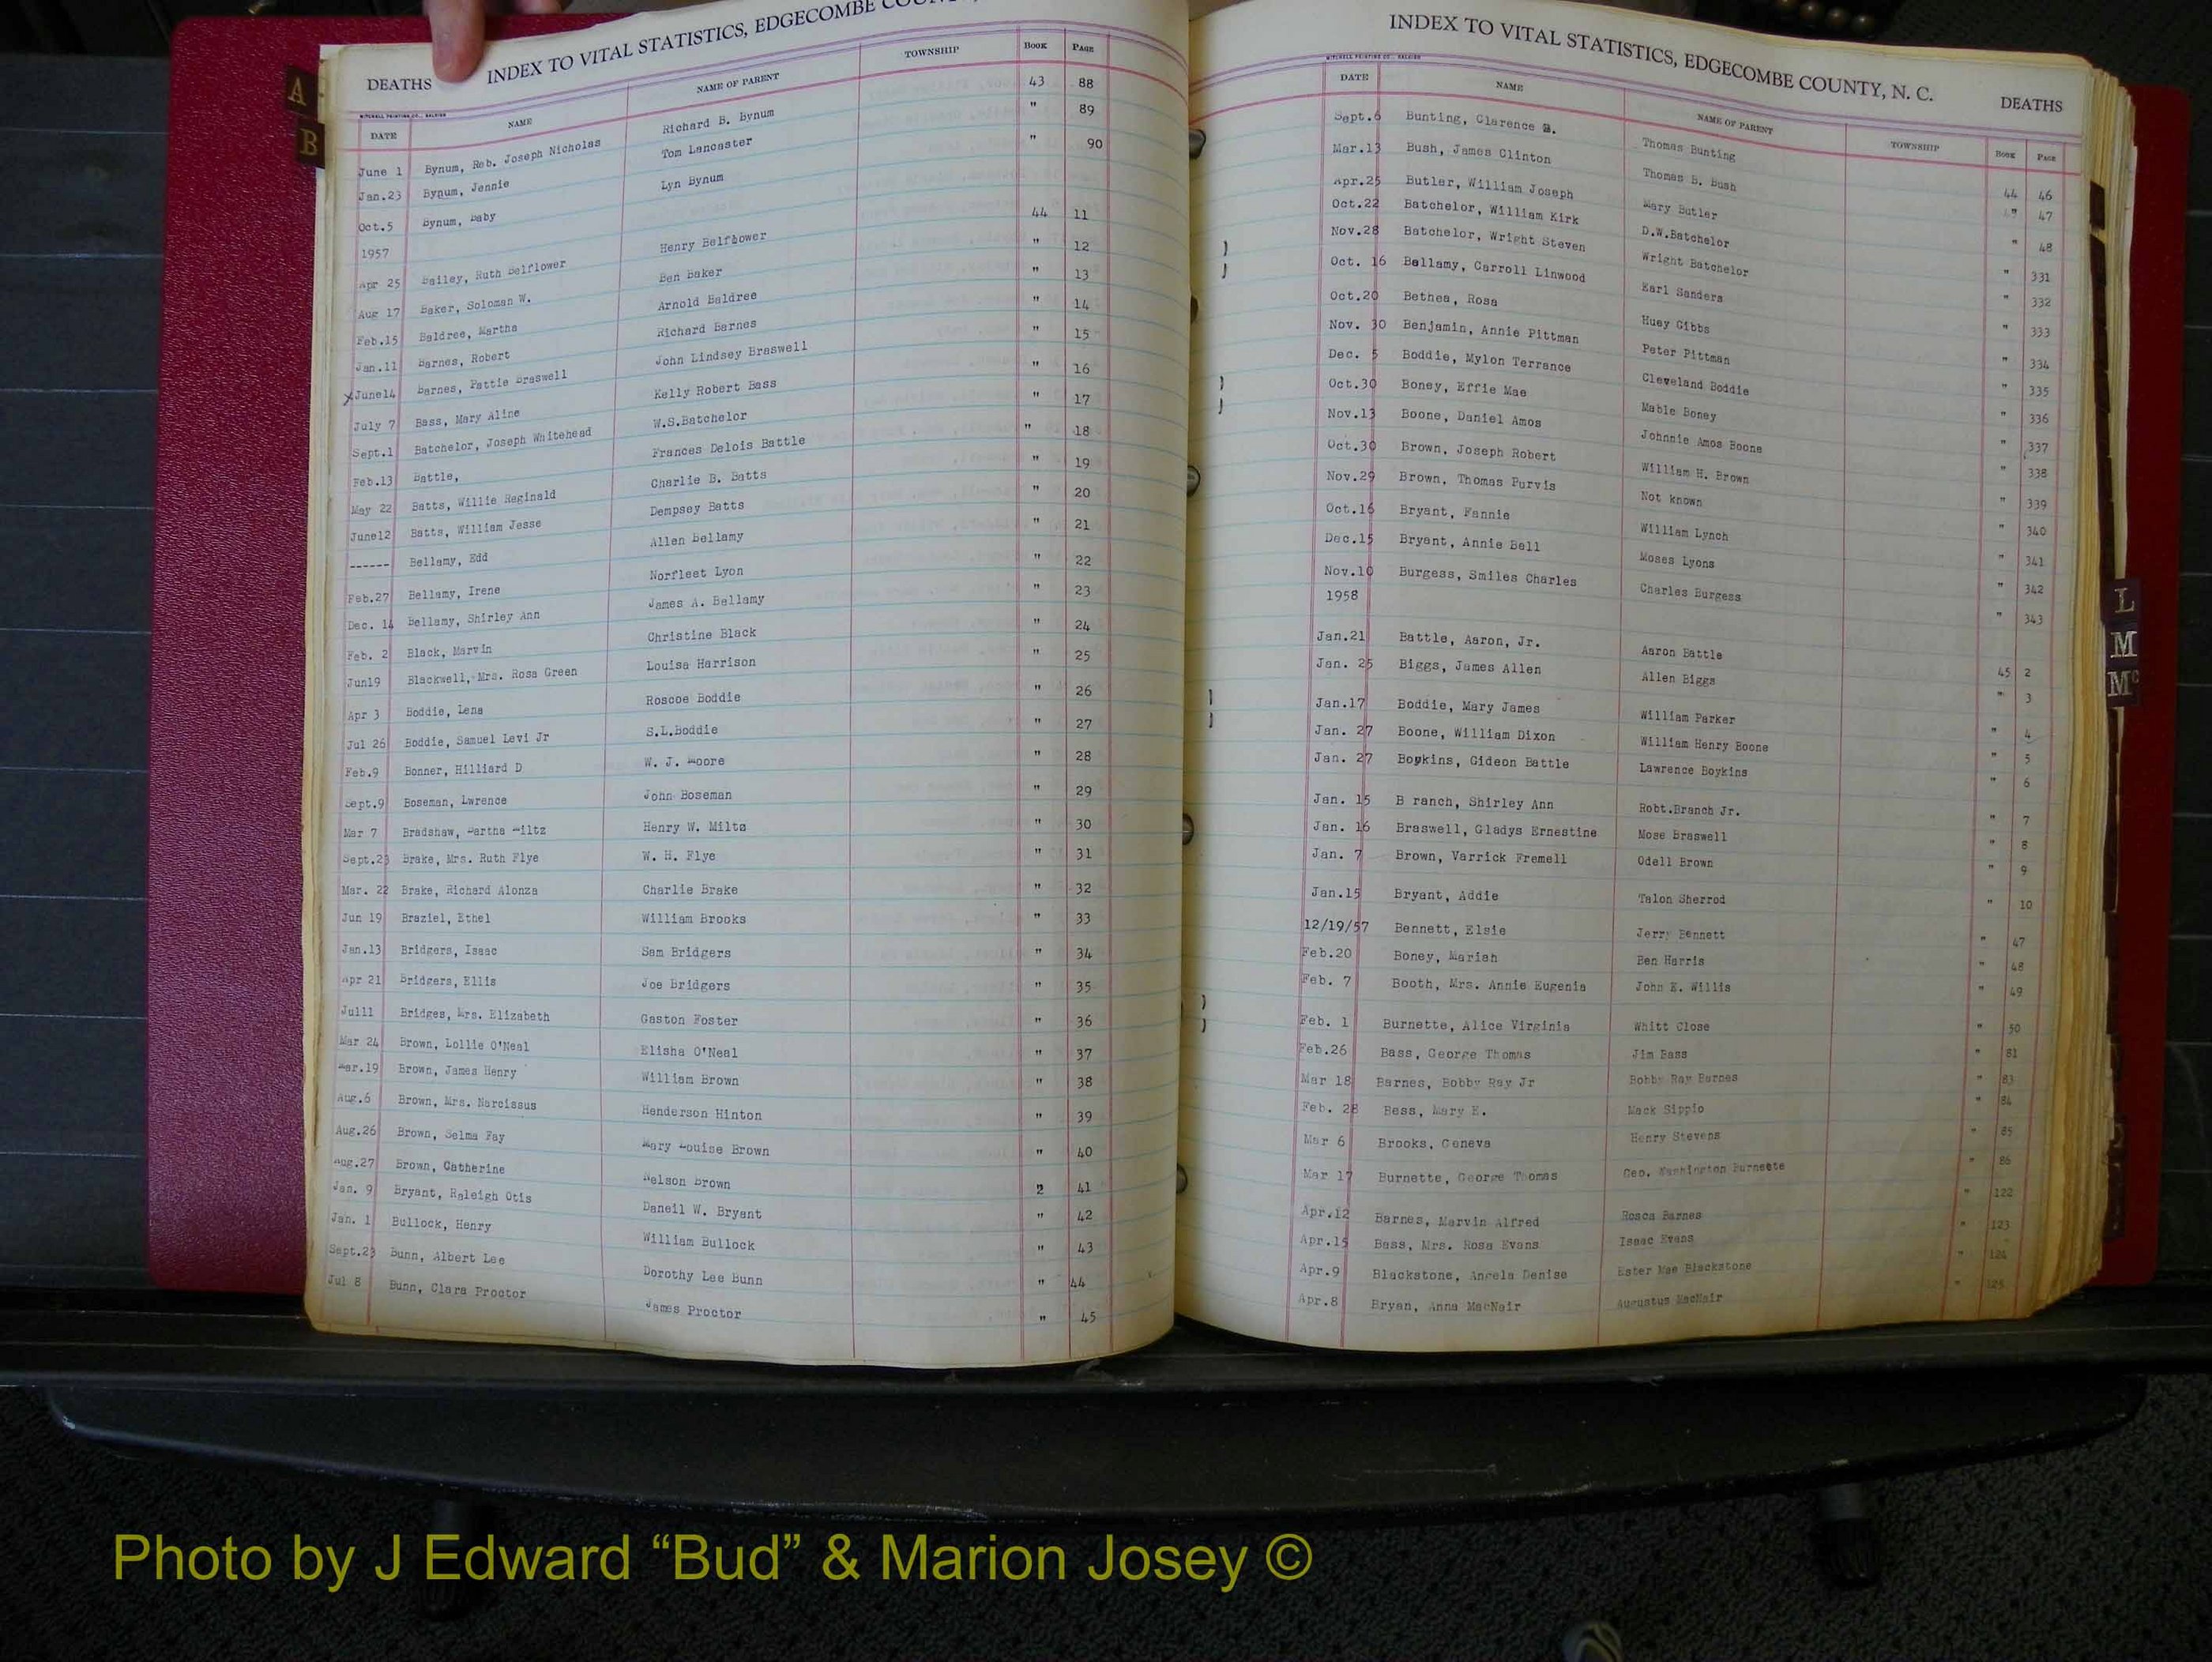 A
B
DEATHS INDEX TO VITAL STATISTICS, EDGECOMBE
MITCHELL PRINTING CO., RALEIGH
DATE NAME NAME OF PARENT TOWNSHIP BOOK PAGE
June 1 Bynum, Reb. Joseph Nicholas Richard B. Bynum 43 88
Jan.23 Bynum, Jennie Tom Lancaster " 89
Oct.5 Bynum, Baby Lyn Bynum " 90
1957
Apr 25 Bailey, Ruth Belflower Henry Belflower 44 11
Aug 17 Baker, Soloman W. Ben Baker " 12
Feb.15 Baldree, Martha Arnold Baldree " 13
Jan.11 Barnes, Robert Richard Barnes " 14
X June14 Barnes, Pattie Braswell John Lindsey Braswell " 15
July 7 Bass, Mary Aline Kelly Robert Bass " 16
Sept.1 Batchelor, Joseph Whitehead W.S.Batchelor " 17
Feb.13 Battle, Frances Delois Battle " 18
May 22 Batts, Willie Reginald Charlie B. Batts " 19
June12 Batts, William Jesse Dempsey Batts " 20
------ Bellamy, Edd Allen Bellamy " 21
Feb.27 Bellamy, Irene Norfleet Lyon " 22
Dec. 14 Bellamy, Shirley Ann James A. Bellamy " 23
Feb. 2 Black, Marvin Christine Black " 24
Jun19 Blackwell, Mrs. Rosa Green Louisa Harrison " 25
Apr 3 Boddie, Lena Roscoe Boddie " 26
Jul 26 Boddie, Samuel Levi Jr S.L.Boddie " 27
Feb.9 Bonner, Hilliard D W. J. Moore " 28
Sept.9 Boseman, Lwrence John Boseman " 29
Mar 7 Bradshaw, Martha Miltz Henry W. Miltz " 30
Sept.23 Brake, Mrs. Ruth Flye W. H. Flye " 31
Mar. 22 Brake, Richard Alonza Charlie Brake " 32
Jun 19 Braziel, Ethel William Brooks " 33
Jan.13 Bridgers, Isaac Sam Bridgers " 34
Apr 21 Bridgers, Ellis Joe Bridgers " 35
Jul11 Bridges, Mrs. Elizabeth Gaston Foster " 36
Mar 24 Brown, Lollie O'Neal Elisha O'Neal " 37
Mar.19 Brown, James Henry William Brown " 38
Aug.6 Brown, Mrs. Narcissus Henderson Hinton " 39
Aug.26 Brown, Selma Fay Mary Louise Brown " 40
Aug.27 Brown, Catherine Nelson Brown 2 41
Jan. 9 Bryant, Raleigh Otis Daneil W. Bryant " 42
Jan. 1 Bullock, Henry William Bullock " 43
Sept.23 Bunn, Albert Lee Dorothy Lee Bunn " 44
Jul 8 Bunn, Clara Proctor James Proctor " 45
INDEX TO VITAL STATISTICS, EDGECOMBE COUNTY, N. C. DEATHS
MITCHELL PRINTING CO., RALEIGH
DATE NAME NAME OF PARENT TOWNSHIP BOOK PAGE
Sept.6 Bunting, Clarence B. Thomas Bunting 44 46
Mar.13 Bush, James Clinton Thomas B. Bush " 47
Apr.25 Butler, William Joseph Mary Butler " 48
Oct.22 Batchelor, William Kirk D.W.Batchelor " 331
Nov.28 Batchelor, Wright Steven Wright Batchelor " 332
Oct. 16 Bellamy, Carroll Linwood Earl Sanders " 333
Oct.20 Bethea, Rosa Huey Gibbs " 334
Nov. 30 Benjamin, Annie Pittman Peter Pittman " 335
Dec. 5 Boddie, Mylon Terrance Cleveland Boddie " 336
Oct.30 Boney, Effie Mae Mable Boney " 337
Nov.13 Boone, Daniel Amos Johnnie Amos Boone " 338
Oct.30 Brown, Joseph Robert William H. Brown " 339
Nov.29 Brown, Thomas Purvis Not known " 340
Oct.16 Bryant, Fannie William Lynch " 341
Dec.15 Bryant, Annie Bell Moses Lyons " 342
Nov.10 Burgess, Smiles Charles Charles Burgess " 343
1958
Jan.21 Battle, Aaron, Jr. Aaron Battle 45 2
Jan. 25 Biggs, James Allen Allen Biggs " 3
Jan.17 Boddie, Mary James William Parker " 4
Jan. 27 Boone, William Dixon William Henry Boone " 5
Jan. 27 Boykins, Gideon Battle Lawrence Boykins " 6
Jan. 15 B ranch, Shirley Ann Robt.Branch Jr. " 7
Jan. 16 Braswell, Gladys Ernestine Mose Braswell " 8
Jan. 7 Brown, Varrick Fremell Odell Brown " 9
Jan.15 Bryant, Addie Talon Sherrod " 10
12/19/57 Bennett, Elsie Jerry Bennett " 47
Feb.20 Boney, Mariah Ben Harris " 48
Feb. 7 Booth, Mrs. Annie Eugenia John E. Willis " 49
Feb. 1 Burnette, Alice Virginia Whitt Close " 50
Feb.26 Bass, George Thomas Jim Bass " 81
Mar 18 Barnes, Bobby Ray Jr Bobby Ray Barnes " 83
Feb. 28 Bess, Mary E. Mack Sippio " 84
Mar 6 Brooks, Geneva Henry Stevens " 85
Mar 17 Burnette, George Thomas Geo. Washington Burnette " 86
Apr.12 Barnes, Marvin Alfred Rosca Barnes " 122
Apr.15 Bass, Mrs. Rosa Evans Isaac Evans " 123
Apr.9 Blackstone, Angela Denise Ester Mae Blackstone " 124
Apr.8 Bryan, Anna MacNair Augustus MacNair " 125
L
M
Mc
Photo by J Edward “Bud” & Marion Josey ©